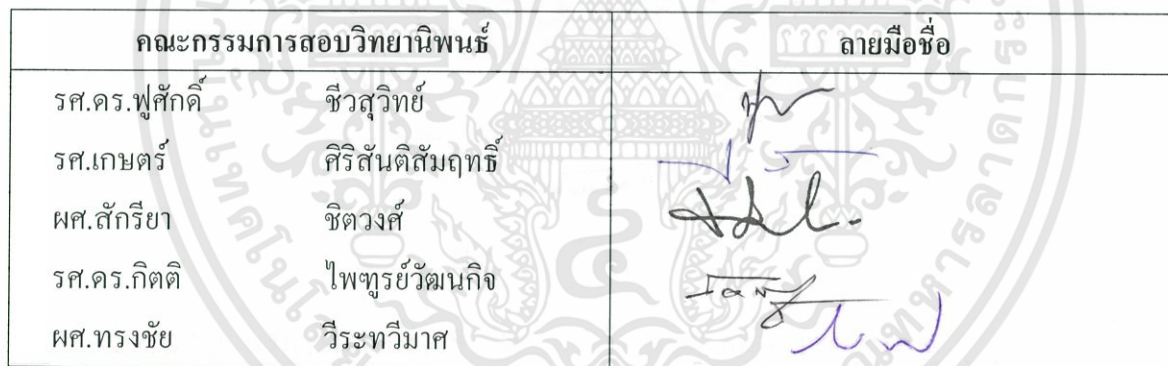 คณะกรรมการสอบวิทยานิพนธ์ ลายมือชื่อ
รศ.ดร.ฟูศักดิ์ ชีวสุวิทย์
รศ.เกษตร์ ศิริสันติสัมฤทธิ์
ผศ.สักรียา ชิตวงศ์
รศ.ดร.กิตติ ไพฑูรย์วัฒนกิจ
ผศ.ทรงชัย วีระทวีมาศ